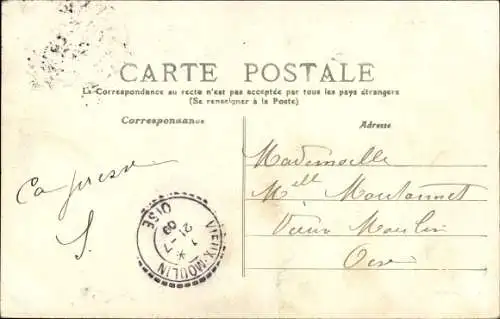 CARTE POSTALE
La Correspondance au recto n'est pas acceptée par tous les pays étrangers
(Se renseigner à la Poste)
Correspondance
Adresse
Mademoiselle
Melle Moutonnet
Vieux Moulin
Oise
S.
VIEUX-MOULIN
OISE
1 *
21 -7
09